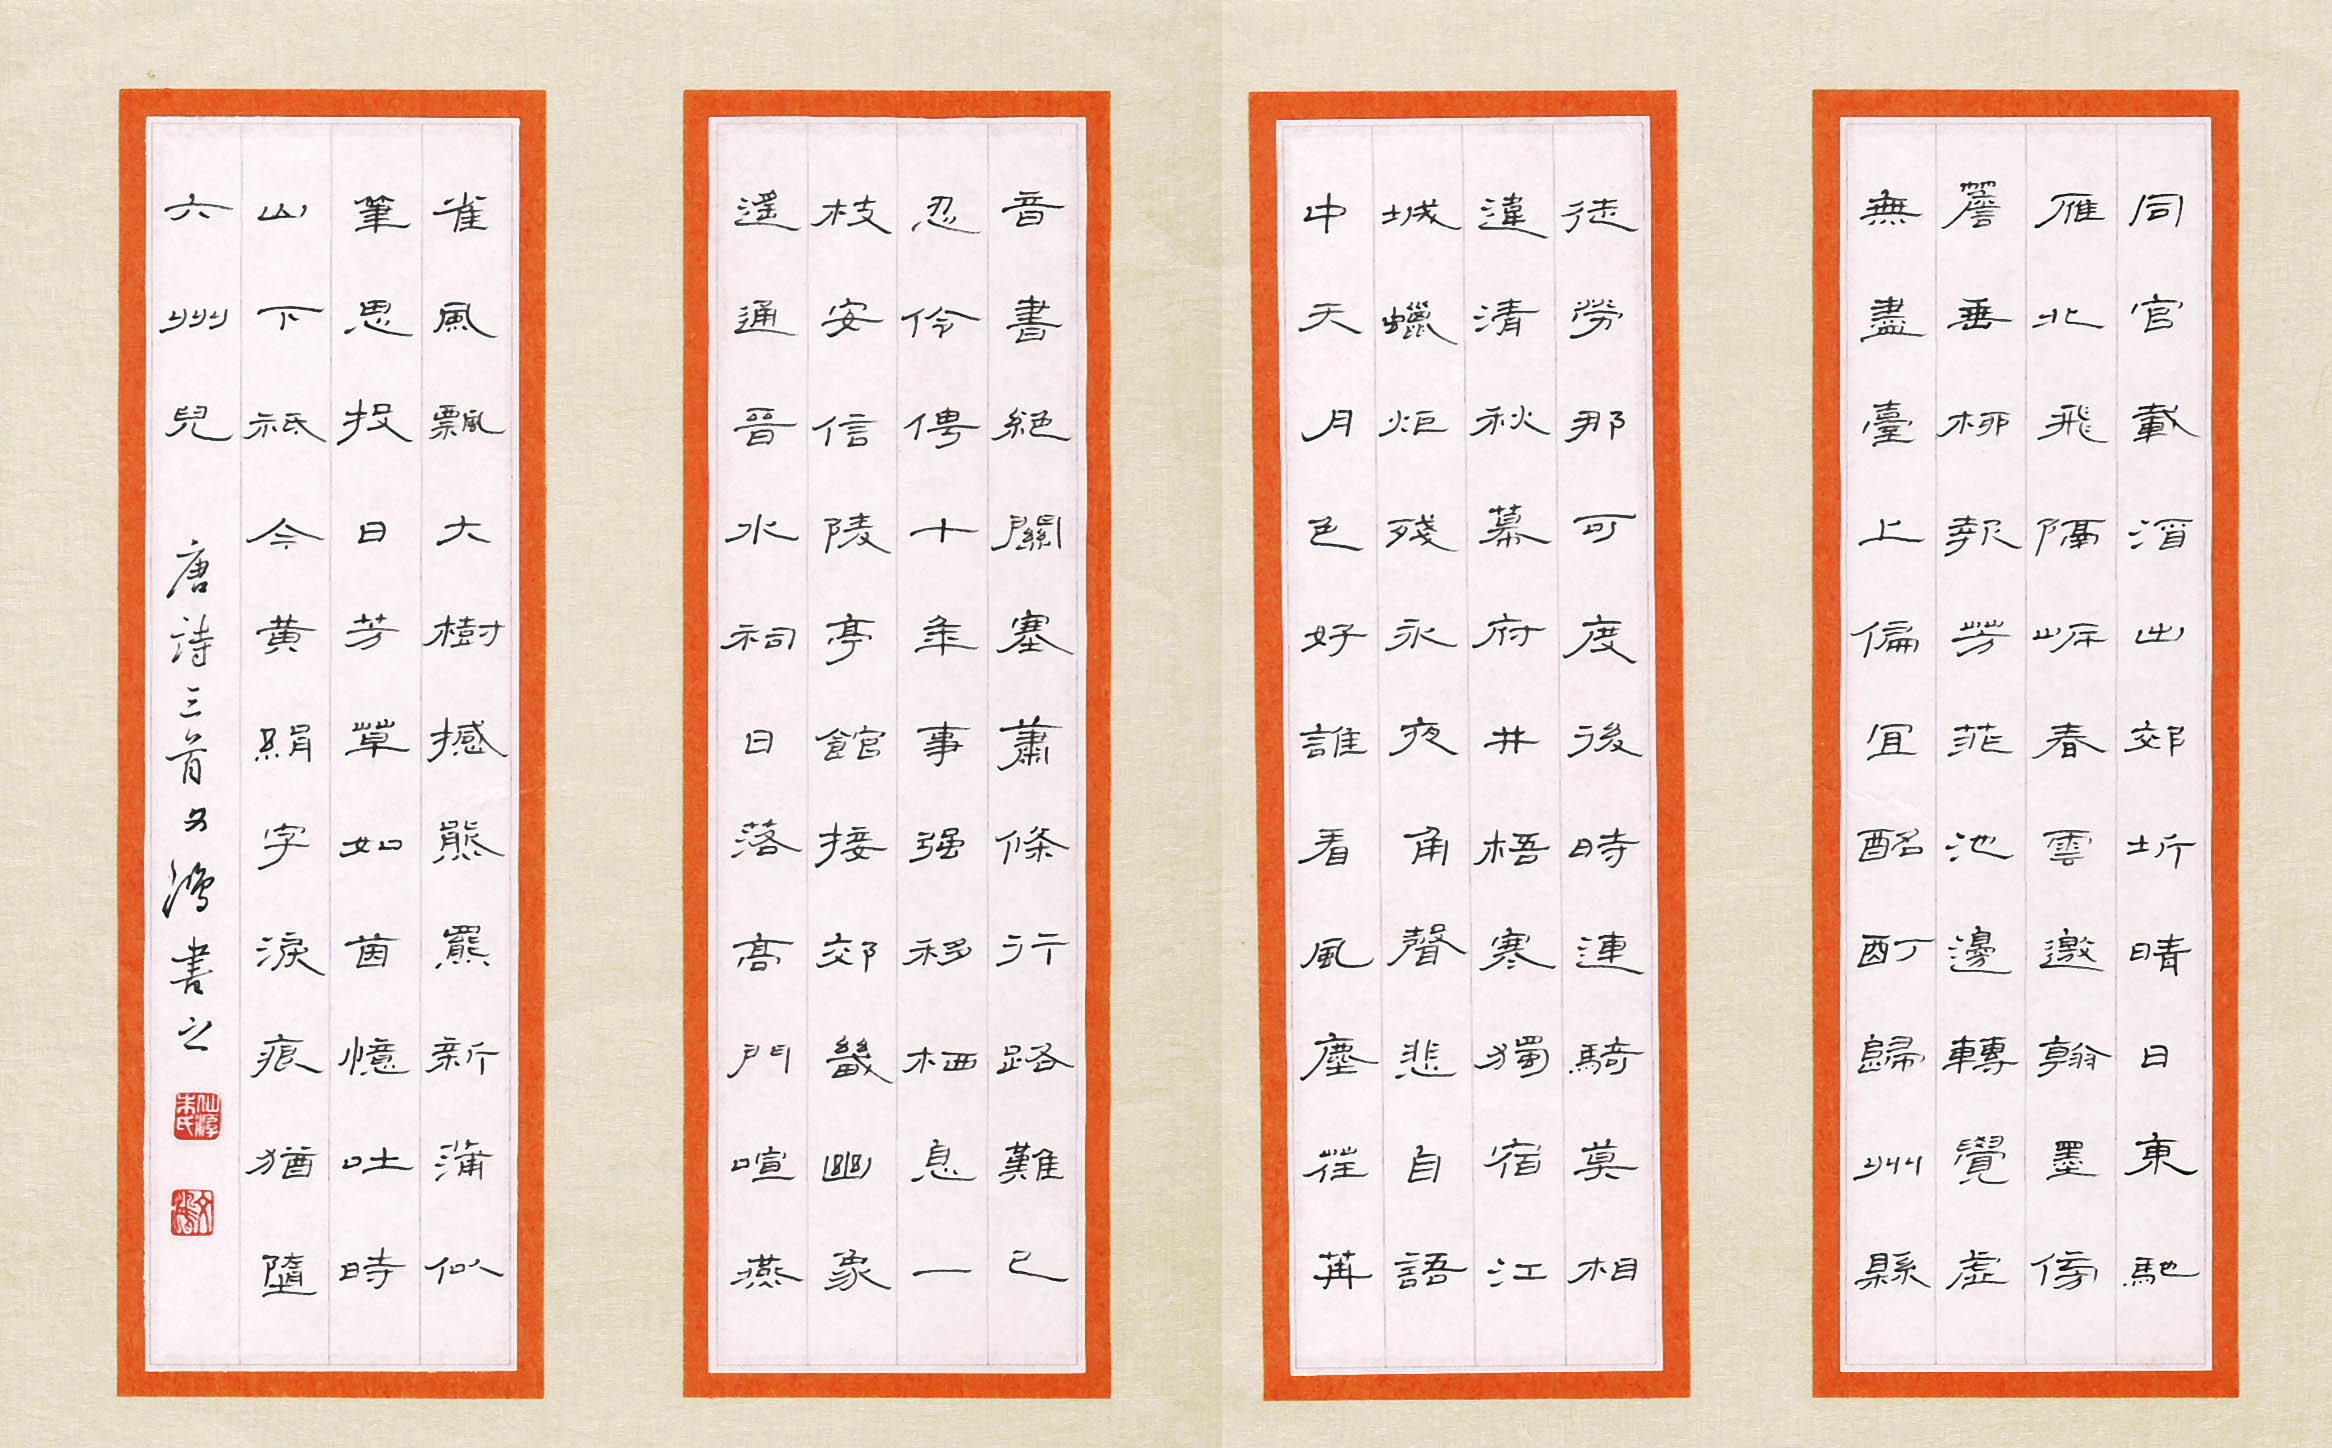 同官載酒出郊圻晴日東馳
雁北飛隔岸春雲邀翰墨傍
簷垂柳報芳菲池邊轉覺虛
無盡臺上偏宜酩酊歸州縣
徒勞那可度後時連騎莫相
違清秋幕府井梧寒獨宿江
城蠟炬殘永夜角聲悲自語
中天月色好誰看風塵荏苒
音書絕關塞蕭條行路難已
忍伶俜十年事强移栖息一
枝安信陵亭館接郊畿幽象
遥通晉水祠日落高門喧燕
雀風飄大樹撼熊羆新蒲似
筆思投日芳草如茵憶吐時
山下祗今黄絹字淚痕猶墮
六州兒 唐詩三首文鴻書之